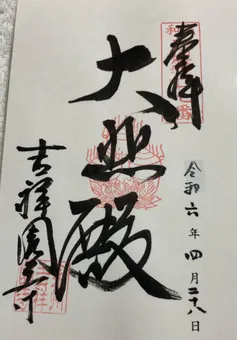 奉拝
大悲殿
令和六年四月二十八日
吉祥園寺